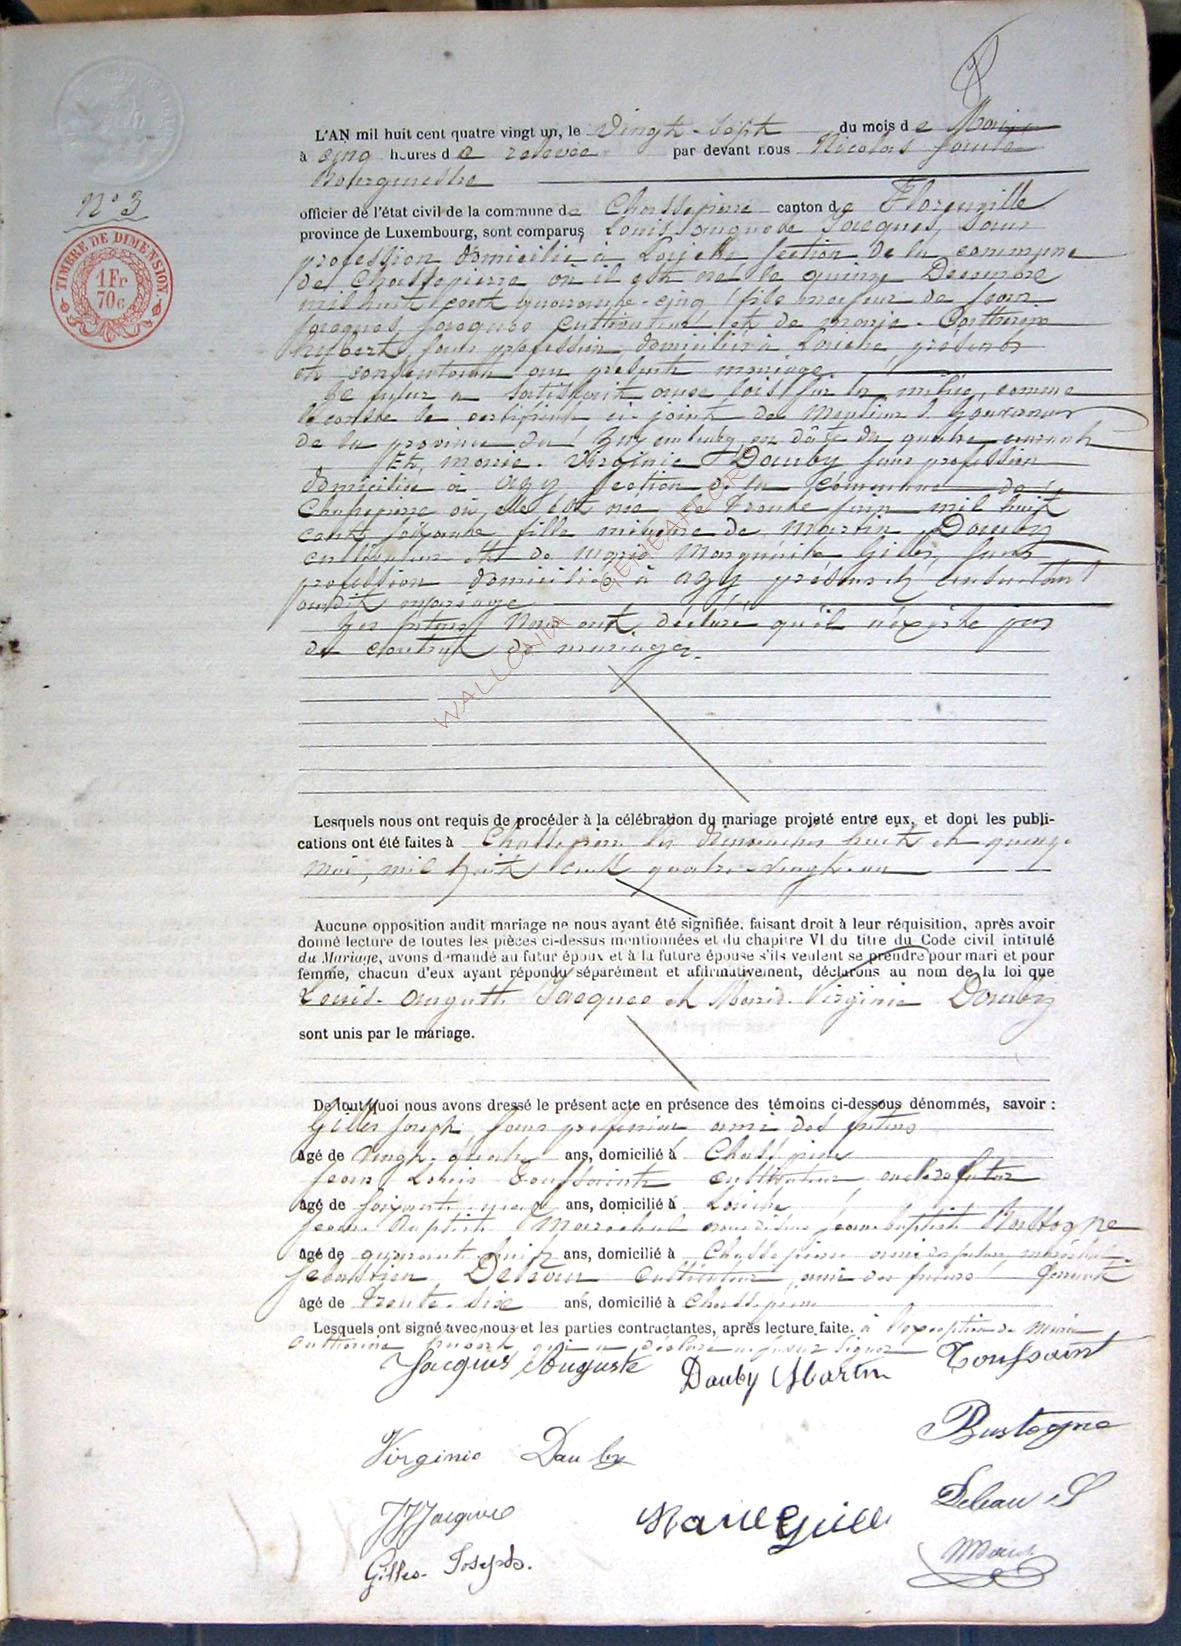 L'AN mil huit cent quatre vingt un, le vingt-sept du mois de Mai
à cinq heures de relevée par devant nous Nicolas
Bourgmestre
N° 3
officier de l'état civil de la commune de Chassepierre canton de Florenville
province de Luxembourg, sont comparus Louis auguste Jacques, sans
profession domicilié à section de la commune
de Chassepierre où il est né le quinze Decembre
mil huit cent quarante-cinq fils majeur de Jean
Jacques Jacques cultivateur et de marie-Catherine
hubert sans profession domiciliés à présents
et consentant au présent mariage.
Le futur a satisfait aux lois sur la milice, comme
le constate le certificat ci-joint de Monsieur le Gouverneur
de la province du Luxembourg en date du quatre courant
Et marie-Virginie Dauby sans profession
domiciliée à section de la commune de
Chassepierre où elle est née le trente juin mil huit
cent soixante fille mineure de martin Dauby
cultivateur et de marie Marguerite Gilles, sans
profession domiciliés à présents et consentant
audit mariage
Les futurs Nous ont déclaré qu'il n'existe pas
de contrat de mariage.
TIMBRE DE DIMENSION
1 Fr
70 c
WALLONIA GENEAFGR
Lesquels nous ont requis de procéder à la célébration du mariage projeté entre eux, et dont les publi-
cations ont été faites à Chassepierre les dimanches huit et quinze
Mai, mil huit cent quatre-vingt-un
Aucune opposition audit mariage ne nous ayant été signifiée, faisant droit à leur réquisition, après avoir
donné lecture de toutes les pièces ci-dessus mentionnées et du chapitre VI du titre du Code civil intitulé
du Mariage, avons demandé au futur époux et à la future épouse s'ils veulent se prendre pour mari et pour
femme, chacun d'eux ayant répondu séparément et affirmativement, déclarons au nom de la loi que
Louis-auguste Jacques et Marie-Virginie Dauby
sont unis par le mariage.
De tout quoi nous avons dressé le présent acte en présence des témoins ci-dessous dénommés, savoir :
Gilles Joseph sans profession ami des futurs
âgé de vingt-quatre ans, domicilié à Chassepierre
Jean Louis Toussaint cultivateur oncle du futur
âgé de soixante ans, domicilié à
Jean Baptiste Jean baptiste Bastogne
âgé de quarante-huit ans, domicilié à Chassepierre ami des futurs
Sebastien cultivateur ami des futurs
âgé de trente-six ans, domicilié à Chassepierre
Lesquels ont signé avec nous et les parties contractantes, après lecture faite. à l'exception de Marie
Catherine hubert qui a déclaré ne savoir signer
Jacques Auguste Dauby Martin Toussaint
Bastogne
Virginie Dauby
JJ Jacques
Gilles Joseph.